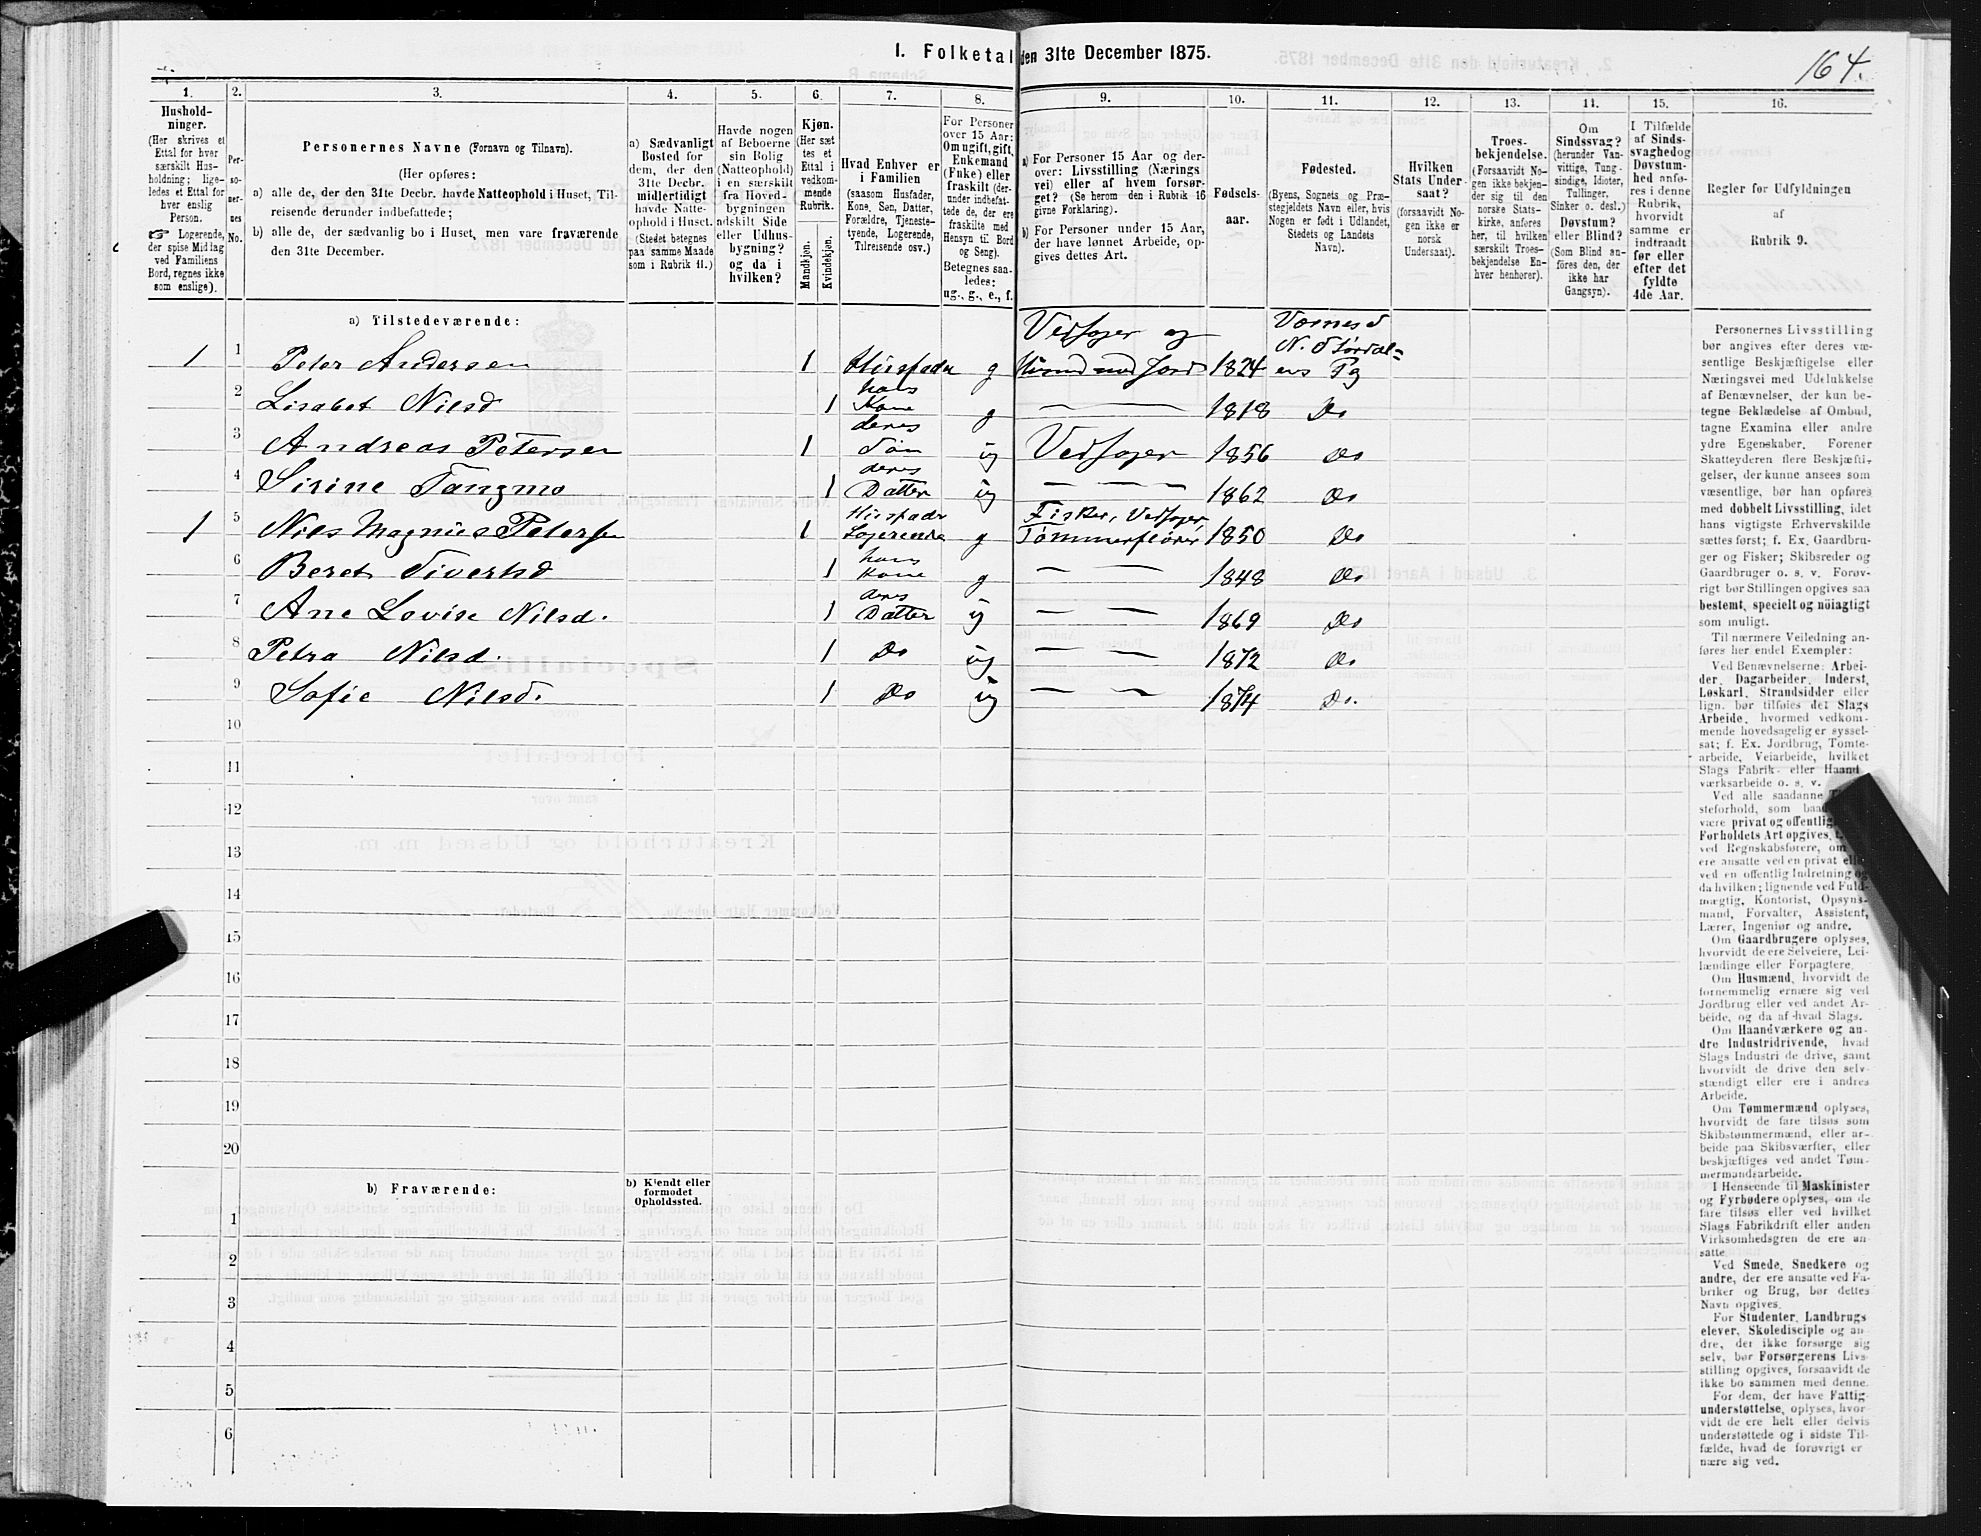 I. Folketal den 31te December 1875.
164.
1. 2. 3. 4. 5. 6. 7. 8. 9. 10. 11. 12. 13. 14. 15. 16.
Hushold-
ninger.
(Her skrives et
Ettal for hver
særskilt Hus-
holdning; lige-
ledes et Ettal for
hver enslig
Person.
☞ Logerende,
der spise Middag
ved Familiens
Bord, regnes ikke
som enslige).
Per-
so-
ner-
nes
No.
Personernes Navne (Fornavn og Tilnavn).
(Her opføres:
a) alle de, der den 31te Decbr. havde Natteophold i Huset, Til-
reisende derunder indbefattede;
b) alle de, der sædvanlig bo i Huset, men vare fraværende
den 31te December.
a) Sædvanligt
Bosted for
dem, der den
31te Decbr.
midlertidigt
havde Natte-
ophold i Huset.
(Stedet betegnes
paa samme Maade
som i Rubrik 11.)
Havde nogen
af Beboerne
sin Bolig
(Natteophold)
i en særskilt
fra Hoved-
bygningen
adskilt Side
eller Udhus-
bygning?
og da i
hvilken?
Kjøn.
(Her sæt
tes et
Ettal i
vedkom-
mende
Rubrik.
Mandkjøn.
Kvindekjøn.
Hvad Enhver er
i Familien
(saasom Husfader,
Kone, Søn, Datter,
Forældre, Tjeneste-
tyende, Logerende,
Tilreisende osv.)
For Personer
over 15 Aar:
Om ugift, gift,
Enkemand
(Enke) eller
fraskilt (der-
under indbefat-
tede de, der ere
fraskilte med
Hensyn til Bord
og Seng).
Betegnes saa-
ledes:
ug., g., e., f.
a) For Personer 15 Aar og der-
over: Livsstilling (Nærings
vei) eller af hvem forsør-
get? (Se herom den i Rubrik 16
givne Forklaring).
b) For Personer under 15 Aar,
der have lønnet Arbeide, op-
gives dettes Art.
Fødsels-
aar.
Fødested.
(Byens, Sognets og Præ-
stegjeldets Navn eller, hvis
Nogen er født i Udlandet,
Stedets og Landets
Navn).
Hvilken
Stats Under-
saat?
(forsaavidt No-
gen ikke er
norsk
Undersaat).
Troes-
bekjendelse.
(Forsaavidt No-
gen ikke bekjen-
der sig til den
norske Stats-
kirke, anføres
her, til hvilken
særskilt Troes-
bekjendelse En-
hver henhører).
Om
Sindssvag?
(herunder Van-
vittige, Tung-
sindige, Idioter,
Tullinger,
Sinker o. desl.)
Døvstum?
eller Blind?
(Som Blind an-
føres den, der
ikke har
Gangsyn).
I Tilfælde
af Sinds-
svaghed og
Døvstum-
hed anfø-
res i denne
Rubrik,
hvorvidt
samme er
indtraadt
før eller
efter det
fyldte
4de Aar.
Regler for Udfyldningen
af
Rubrik 9.
a) Tilstedeværende:
Vedsager og Værnes S
N. Størdal=
1 1 Peter Andersen 1 Husfader g Husmd med Jord 1824 ens Pg
2 Lisabet Nilsd 1 hans Kone g — — 1818 Do
3 Andreas Petersen 1 deres Søn ug Vedsager 1856 Do
4 Sirine Tangmo 1 deres Datter ug — — — 1862 Do
1 5 Nils Magnus Petersen 1 Husfader Logerende g Fisker, Vedsager Tømmerfløder 1850 Do
6 Beret Sivertsd 1 hans Kone g — — 1848 Do
7 Ane Lovise Nilsd. 1 deres Datter ug — — 1869 Do
8 Petra Nilsd. 1 Do ug — — 1872 Do
9 Sofie Nilsd. 1 Do ug — — 1874 Do.
10
11
12
13
14
15
16
17
18
19
20
b) Fraværende:
b) Kjendt eller
formodet
Opholdssted.
1
2
3
4
5
6
Personernes Livsstilling
bør angives efter deres væ-
sentlige Beskjæftigelse eller
Næringsvei med Udelukkelse
af Benævnelser, der kun be-
tegne Beklædelse af Ombud,
tagne Examina eller andre
ydre Egenskaber. Forener
Skatteyderen flere Beskjæfti-
gelser, der kunne ansees som
væsentlige, bør han opføres
med dobbelt Livsstilling, idet
hans vigtigste Erhvervskilde
sættes først; f. Ex. Gaardbru-
ger og Fisker; Skibsreder og
Gaardbruger o. s. v. Forøv-
rigt bør Stillingen opgives saa
bestemt, specielt og nöiagtigt
som muligt.
Til nærmere Veiledning an-
føres her endel Exempler:
Ved Benævnelserne: Arbei-
der, Dagarbeider, Inderst,
Løskarl, Strandsidder eller
lign. bør tilføies det Slags
Arbeide, hvormed vedkom-
mende hovedsagelig er syssel-
sat; f. Ex. Jordbrug, Tomte-
arbeide, Veiarbeide, hvilket
Slags Fabrik- eller Haand
værksarbeide o. s. v.
Ved alle saadanne
steforhold, som
være privat og offentlig
Forholdets Art opgives,
ved Regnskabsførere, om
ere ansatte ved en privat eller
ved en offentlig Indretning og
da hvilken; lignende ved Fuld-
mægtig, Kontorist, Opsyns-
mand, Forvalter, Assistent,
Lærer, Ingeniør og andre.
Om Gaardbrugere oplyses,
hvorvidt de ere Selveiere, Lei-
lændinge eller Forpagtere.
Om Husmænd, hvorvidt de
fornemmelig ernære sig ved
Jordbrug eller ved andet Ar-
beide, og da af hvad Slags.
Om Haandværkere og an-
dre Industridrivende, hvad
Slags Industri de drive, samt
hvorvidt de drive den selv-
stændigt eller ere i andres
Arbeide.
Om Tømmermænd oplyses,
hvorvidt de fare tilsøs som
Skibstømmermænd, eller ar-
beide paa Skibsværfter, eller
beskjæftiges ved andet Tøm-
mermandsarbeide.
I Henseende til Maskinister
og Fyrbødere oplyses, om de
fare tilsøs eller ved hvilket
Slags Fabrikdrift eller anden
Virksomhedsgren de ere an-
satte.
Ved Smede, Snedkere og
andre, der ere ansatte ved Fa-
briker og Brug, bør dettes
Navn opgives.
For Studenter, Landbrugs
elever, Skoledisciple og an-
dre, der ikke forsørge sig
selv, bør Forsørgerens Livs-
stilling opgives, forsaavidt de
ikke bo sammen med denne.
For dem, der have Fattig-
understøttelse, oplyses, hvor-
vidt de ere helt eller delvis
understøttede og i sidste Til-
fælde, hvad de forøvrigt er
nære sig ved.